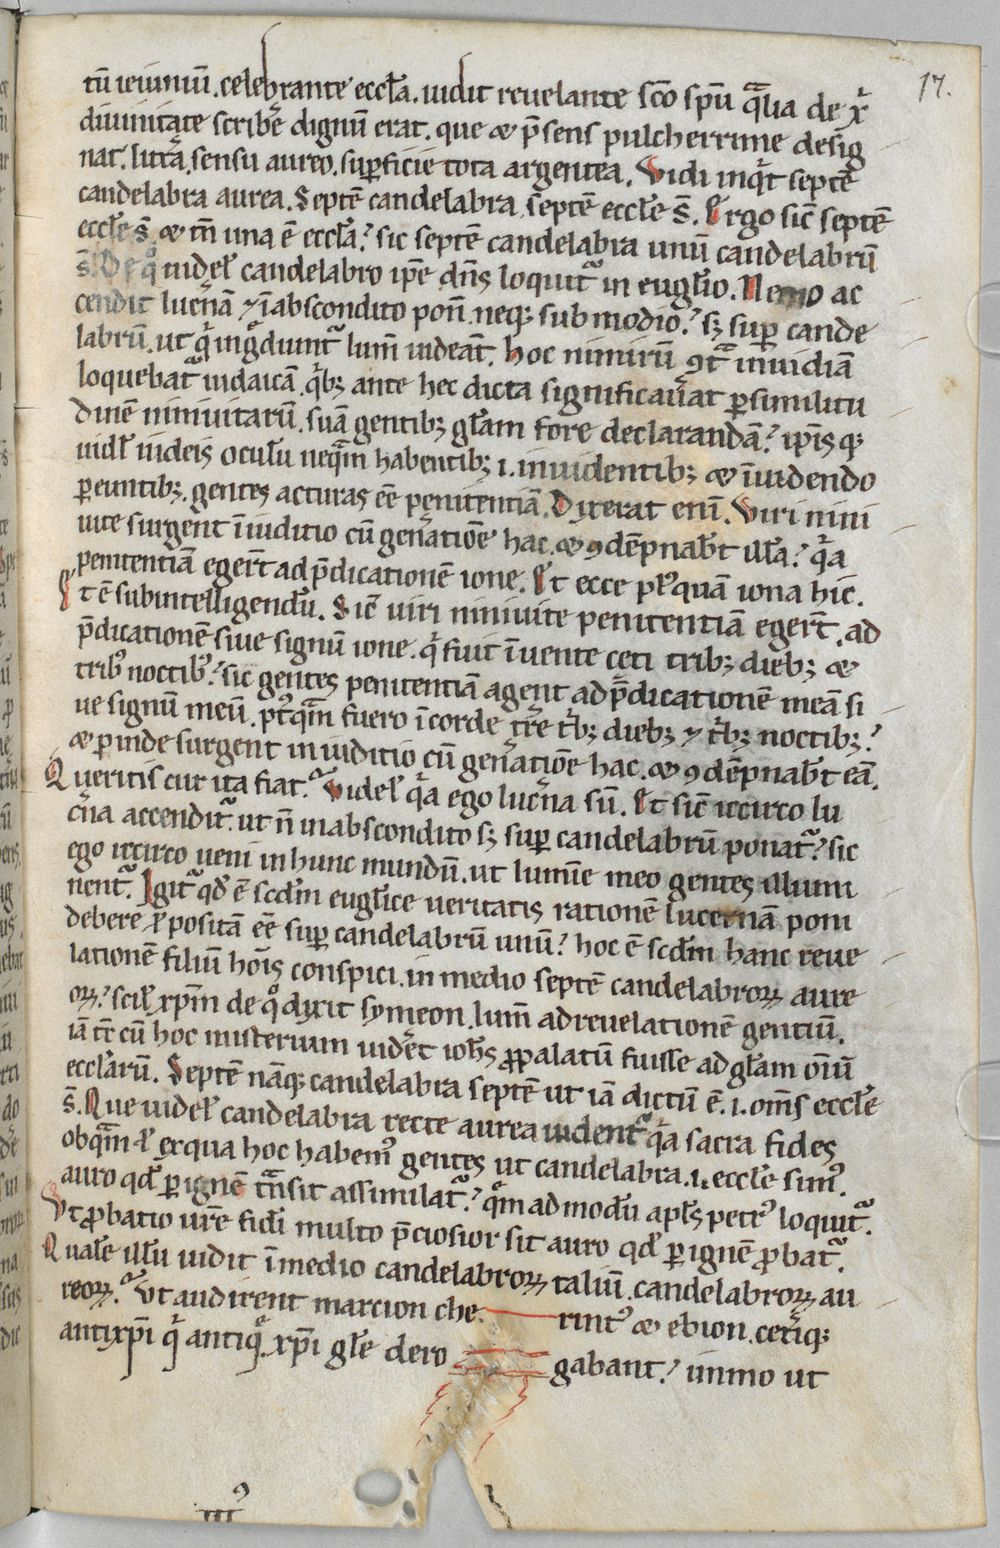 17.
tū ieiuniū. celebrante eccła. uidit reuelante sc̄o sp̄u q̄lia de xp̄i
diuinitate scribe dignū erat. que & p̄sens pulcherrime desig
nat. litt̄a, sensu aureo, suꝑficie tota argentea. Vidi inqͥt septē
candelabra aurea. Septē candelabra, septē eccłe s̄. Ergo sic̄ septē
eccłe s̄. & tn̄ una ē eccła? sic septē candelabra unū candelabrū
s̄. De qͦ uidel̄ candelabro ip̄e dn̄s loquit᷑ in euglio. Nemo ac
cendit lucn̄ā ⁊ ī abscondito pon̄. neqꝫ sub modio? sꝫ suꝑ cande
labrū. ut qͥ ingͣdiunt᷑ lum̄ uideāt. Hoc nimirū ꝯtͣ inuidiā
loquebat᷑ iudaicā. qͥbꝫ ante hec dicta significauāt ꝑ similitu
dinē niniuitarū. suā gentibꝫ gꝉam fore declarandā? ip̄is qꝫ
uidl̄ iudeis oculū neqͣm habentibꝫ .i. inuidentibꝫ & īuidendo
ꝑeuntibꝫ. gentes acturas eē penitentiā. Dixerat enī. Viri nini
uite surgent ī iuditio cū genꝰatiōe hac. & ꝯdēpnabt̄ illā? qͥa
penitentiā egert̄ ad p̄dicationē ione. Et ecce pl̄ꝰquā iona hic.
Et ē subintelligendū. Sic̄ uiri niniuite penitentiā egert̄. ad
p̄dicationē siue signū ione. qͥ fuit ī uentre ceti tribꝫ diebꝫ &
tribꝰ noctibꝰ? sic gentes penitentiā agent ad p̄dicationē meā si
ue signū meū. pꝰtqͣm fuero ī corde tr̄e tͥbꝫ diebꝫ ⁊ tͥbꝫ noctibꝫ?
& ꝑinde surgent in iuditio cū genꝰatiōe hac. & ꝯdēpnabt̄ eā.
Queritis cur ita fiat? Videl̄ qͥa ego lucn̄a sū. Et sic̄ iccirco lu
cn̄a accendit᷑. ut n̄ in abscondito sꝫ suꝑ candelabrū ponat᷑? sic
ego iccirco ueni in hunc mundū. ut lumīe meo gentes illumi
nent᷑. Igit᷑ qd̄ ē scd̄m euglice ueritatis rationē lucernā poni
debere ł positā eē suꝑ candelabrū unū? hoc ē scd̄m hanc reue
lationē filiū hōis conspici. in medio septē candelabroꝝ aure
oꝝ? scil̄ xp̄m de qͦ dixit symeon. lum̄ ad reuelationē gentiū.
iā tē cū hoc misterium uider̄et ioh̄s ꝓpalatū fuisse ad gꝉam oīū
eccłarū. Septē nāqꝫ candelabra septē ut iā dictū ē .i. om̄s eccłe
s̄. Que uidel̄ candelabra recte aurea uident᷑. qͥa sacra fides
ob qͣm ł ex qua hoc habemꝰ gentes ut candelabra .i. eccłe simꝰ.
auro qd̄ ꝑ ignē tͣnsit assimilat᷑? qͣm ad modū apłs petrꝰ loquit᷑.
Ut ꝓbatio ur̄e fidi multo p̄ciosior sit auro qd̄ ꝑ ignē ꝓbat᷑.
Quale illū uidit ī medio candelabroꝝ, taliū candelabroꝝ au
reoꝝ? Ut audirent marcion che rintꝰ & ebion. ceteriqꝫ
antixp̄i qͥ antiqͦ xp̄i głe dero gabant? immo ut
IIIꝰ